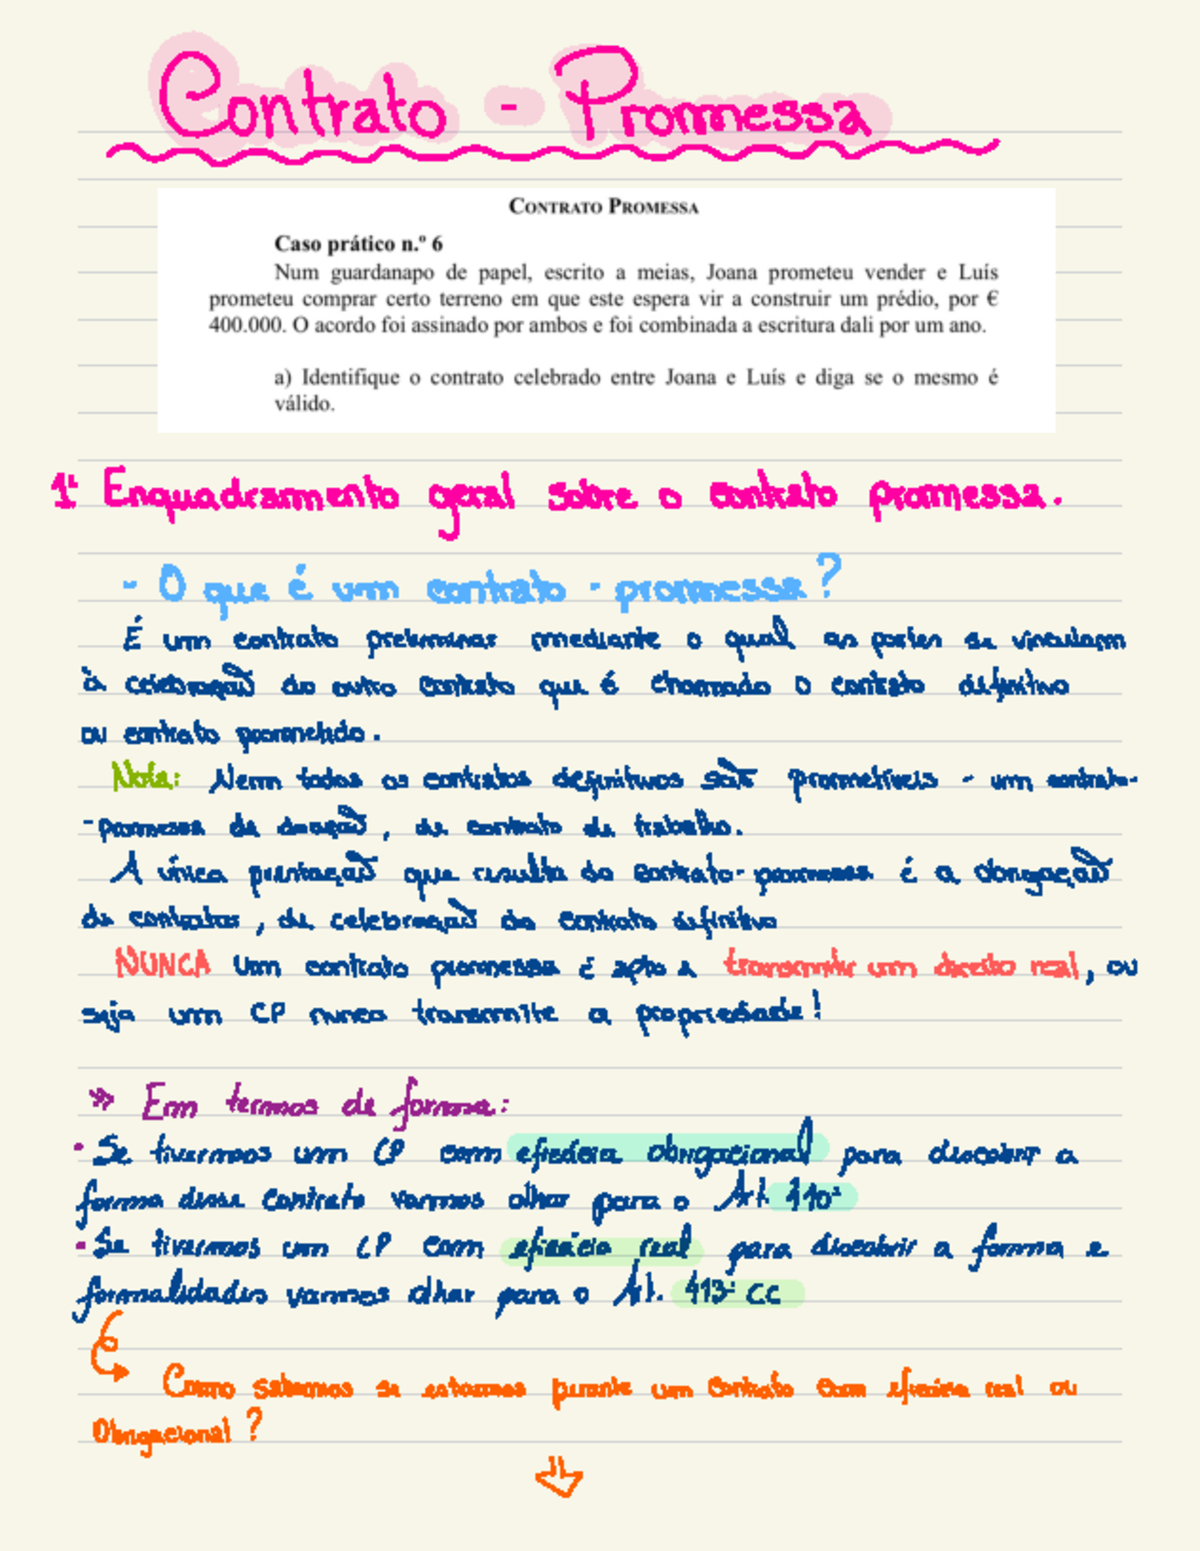 Contrato - Promessa
CONTRATO PROMESSA
Caso prático n.º 6
Num guardanapo de papel, escrito a meias, Joana prometeu vender e Luís
prometeu comprar certo terreno em que este espera vir a construir um prédio, por €
400.000. O acordo foi assinado por ambos e foi combinada a escritura dali por um ano.
a) Identifique o contrato celebrado entre Joana e Luís e diga se o mesmo é
válido.
1º Enquadramento geral sobre o contrato promessa.
- O que é um contrato - promessa?
É um contrato preliminar mediante o qual as partes se vinculam
à celebração do outro contrato que é chamado o contrato definitivo
ou contrato prometido.
Nota: Nem todos os contratos definitivos são prometíveis - um contrato-
-promessa de doação, de contrato de trabalho.
A única prestação que resulta do contrato-promessa é a obrigação
de contratar, de celebração do contrato definitivo
NUNCA um contrato promessa é apto a transmitir um direito real, ou
seja um CP nunca transmite a propriedade!
» Em termos de forma:
• Se tivermos um CP com eficácia obrigacional para descobrir a
forma desse contrato vamos olhar para o Art. 410º
• Se tivermos um CP com eficácia real para descobrir a forma e
formalidades vamos olhar para o Art. 413º CC
Como sabemos se estamos perante um contrato com eficácia real ou
Obrigacional?